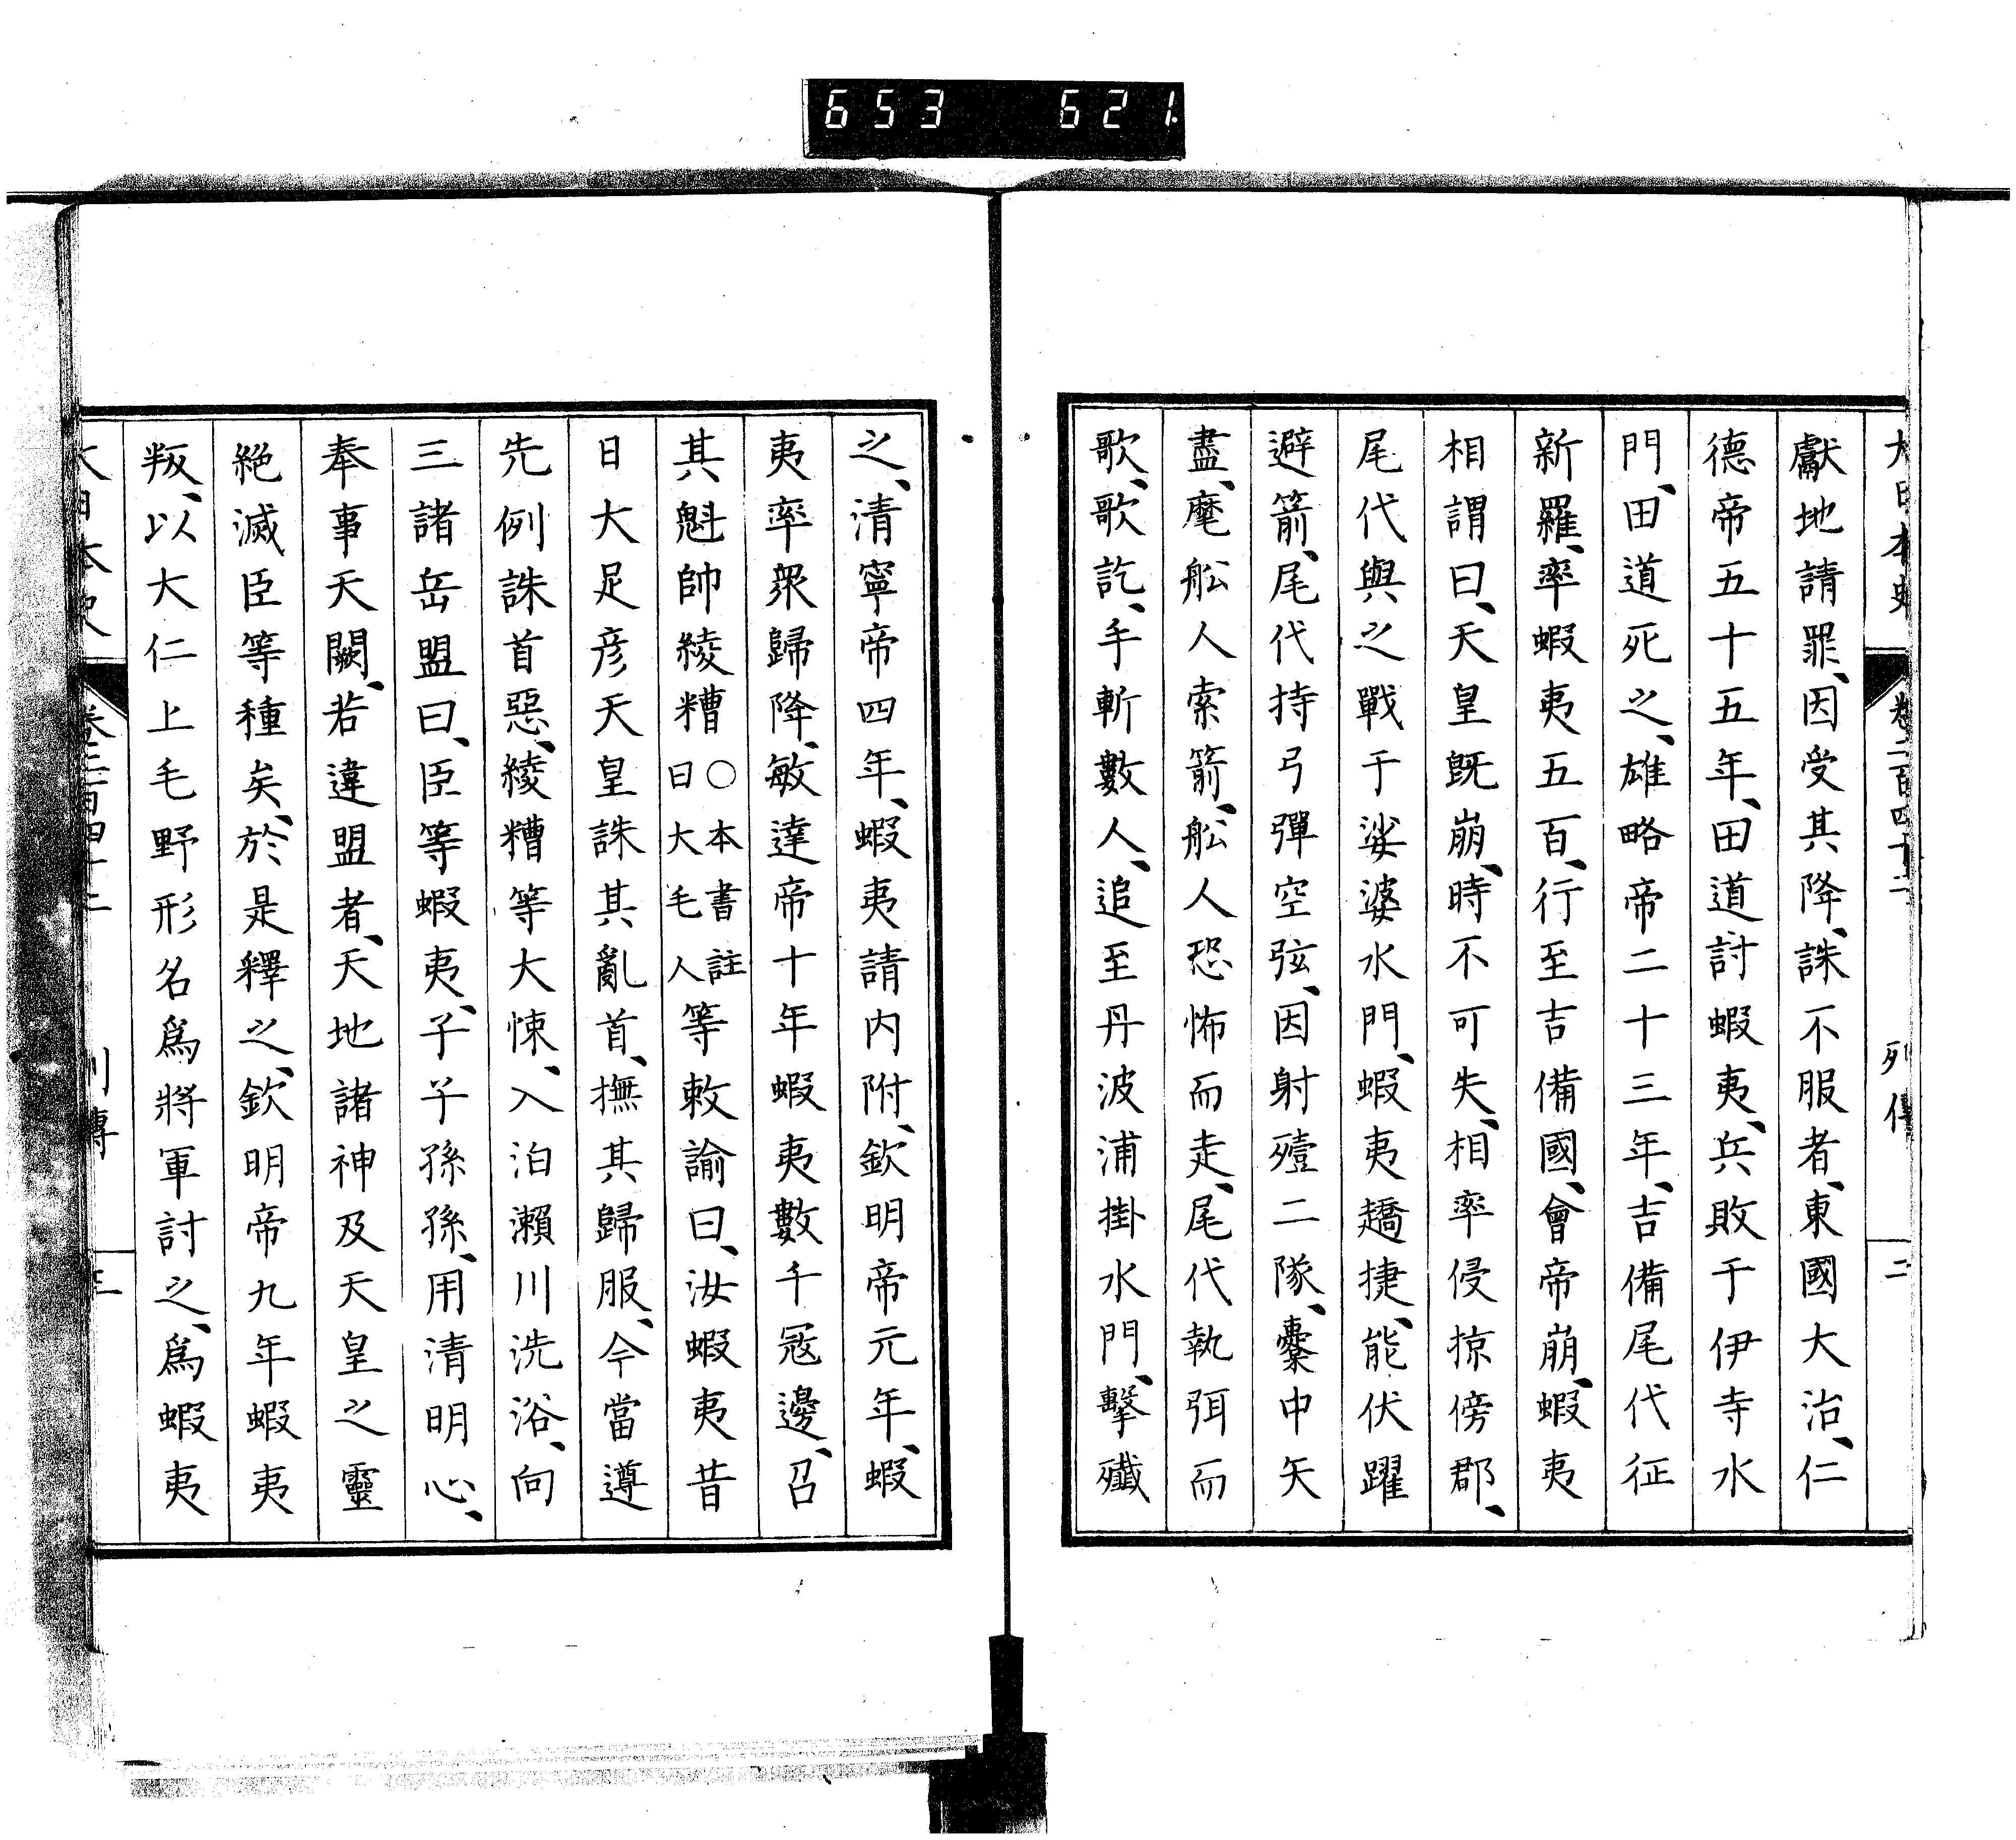 653 621.
大日本史 卷二百四十二 列傳 二
獻地請罪、因受其降、誅不服者、東國大治、仁
德帝五十五年、田道討蝦夷、兵敗于伊寺水
門、田道死之、雄略帝二十三年、吉備尾代征
新羅、率蝦夷五百、行至吉備國、會帝崩、蝦夷
相謂曰、天皇既崩、時不可失、相率侵掠傍郡、
尾代與之戰于娑婆水門、蝦夷趫捷、能伏躍
避箭、尾代持弓彈空弦、因射殪二隊、櫜中矢
盡、麾舩人索箭、舩人恐怖而走、尾代執弭而
歌、歌訖、手斬數人、追至丹波浦掛水門、擊殲
之、清寧帝四年、蝦夷請内附、欽明帝元年、蝦
夷率衆歸降、敏達帝十年蝦夷數千冦邊、召
其魁帥綾糟○本書註曰大毛人等敕諭曰、汝蝦夷昔
日大足彦天皇誅其亂首、撫其歸服、今當遵
先例誅首惡、綾糟等大悚、入泊瀨川洗浴、向
三諸岳盟曰、臣等蝦夷、子子孫孫、用清明心、
奉事天闕、若違盟者、天地諸神及天皇之靈
絶滅臣等種矣、於是釋之、欽明帝九年蝦夷
叛、以大仁上毛野形名爲將軍討之、爲蝦夷
大日本史 卷二百四十二 列傳 三